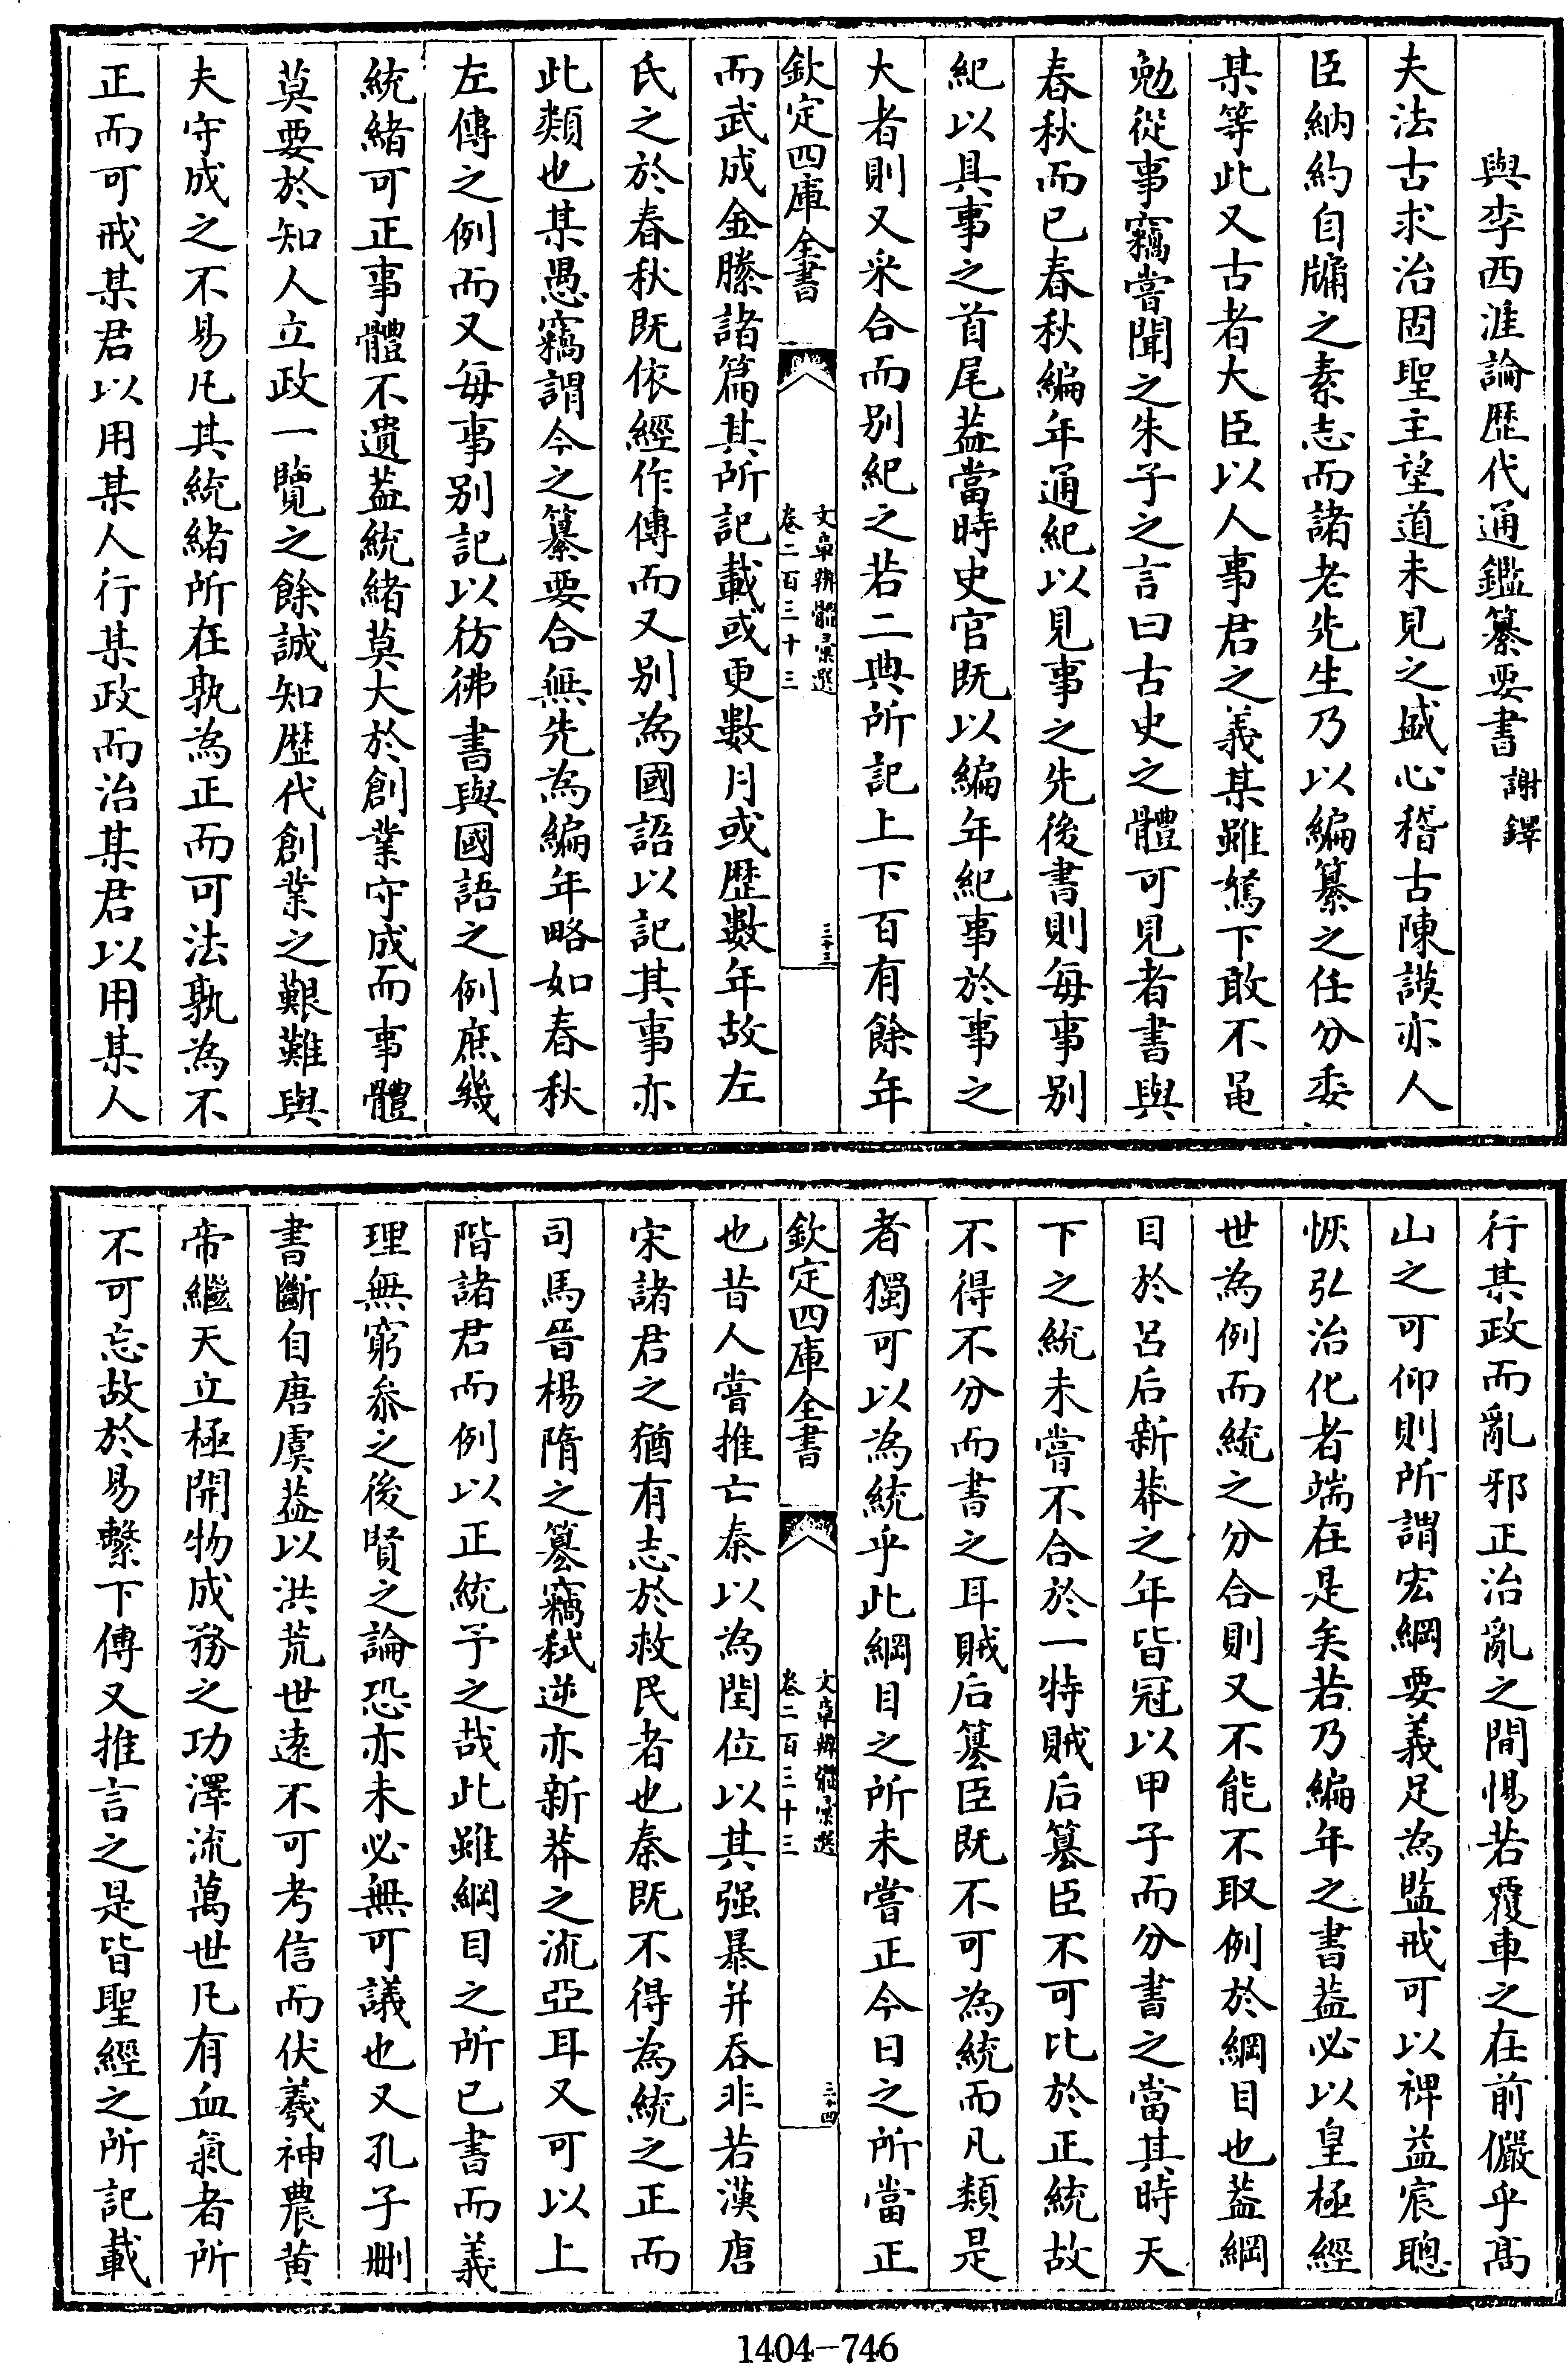 與李西涯論歴代通鑑纂要書 謝鐸
夫法古求治固聖主望道未見之盛心稽古陳謨亦人
臣納約自牖之素志而諸老先生乃以編纂之任分委
某等此又古者大臣以人事君之義某雖駑下敢不黽
勉從事竊嘗聞之朱子之言曰古史之體可見者書與
春秋而已春秋編年通紀以見事之先後書則每事别
紀以具事之首尾葢當時史官既以編年紀事於事之
大者則又采合而别紀之若二典所記上下百有餘年
欽定四庫全書
文章辨體彚選
卷二百三十三
三十三
而武成金縢諸篇其所記載或更數月或歴數年故左
氏之於春秋既依經作傳而又别為國語以記其事亦
此類也某愚竊謂今之纂要合無先為編年略如春秋
左傳之例而又每事别記以彷彿書與國語之例庶幾
統緒可正事體不遺葢統緒莫大於創業守成而事體
莫要於知人立政一覽之餘誠知歴代創業之艱難與
夫守成之不易凡其統緒所在孰為正而可法孰為不
正而可戒某君以用某人行某政而治某君以用某人
行某政而亂邪正治亂之間惕若覆車之在前儼乎髙
山之可仰則所謂宏綱要義足為監戒可以裨益宸聰
恢弘治化者端在是矣若乃編年之書葢必以皇極經
世為例而統之分合則又不能不取例於綱目也葢綱
目於吕后新莽之年皆冠以甲子而分書之當其時天
下之統未嘗不合於一特賊后簒臣不可比於正統故
不得不分而書之耳賊后簒臣既不可為統而凡類是
者獨可以為統乎此綱目之所未嘗正今日之所當正
欽定四庫全書
文章辨體彚選
卷二百三十三
三十四
也昔人嘗推亡秦以為閏位以其强暴并吞非若漢唐
宋諸君之猶有志於救民者也秦既不得為統之正而
司馬晋楊隋之簒竊弑逆亦新莽之流亞耳又可以上
階諸君而例以正統予之哉此雖綱目之所已書而義
理無窮叅之後賢之論恐亦未必無可議也又孔子刪
書斷自唐虞葢以洪荒世逺不可考信而伏羲神農黄
帝繼天立極開物成務之功澤流萬世凡有血氣者所
不可忘故於易繫下傳又推言之是皆聖經之所記載
1404-746